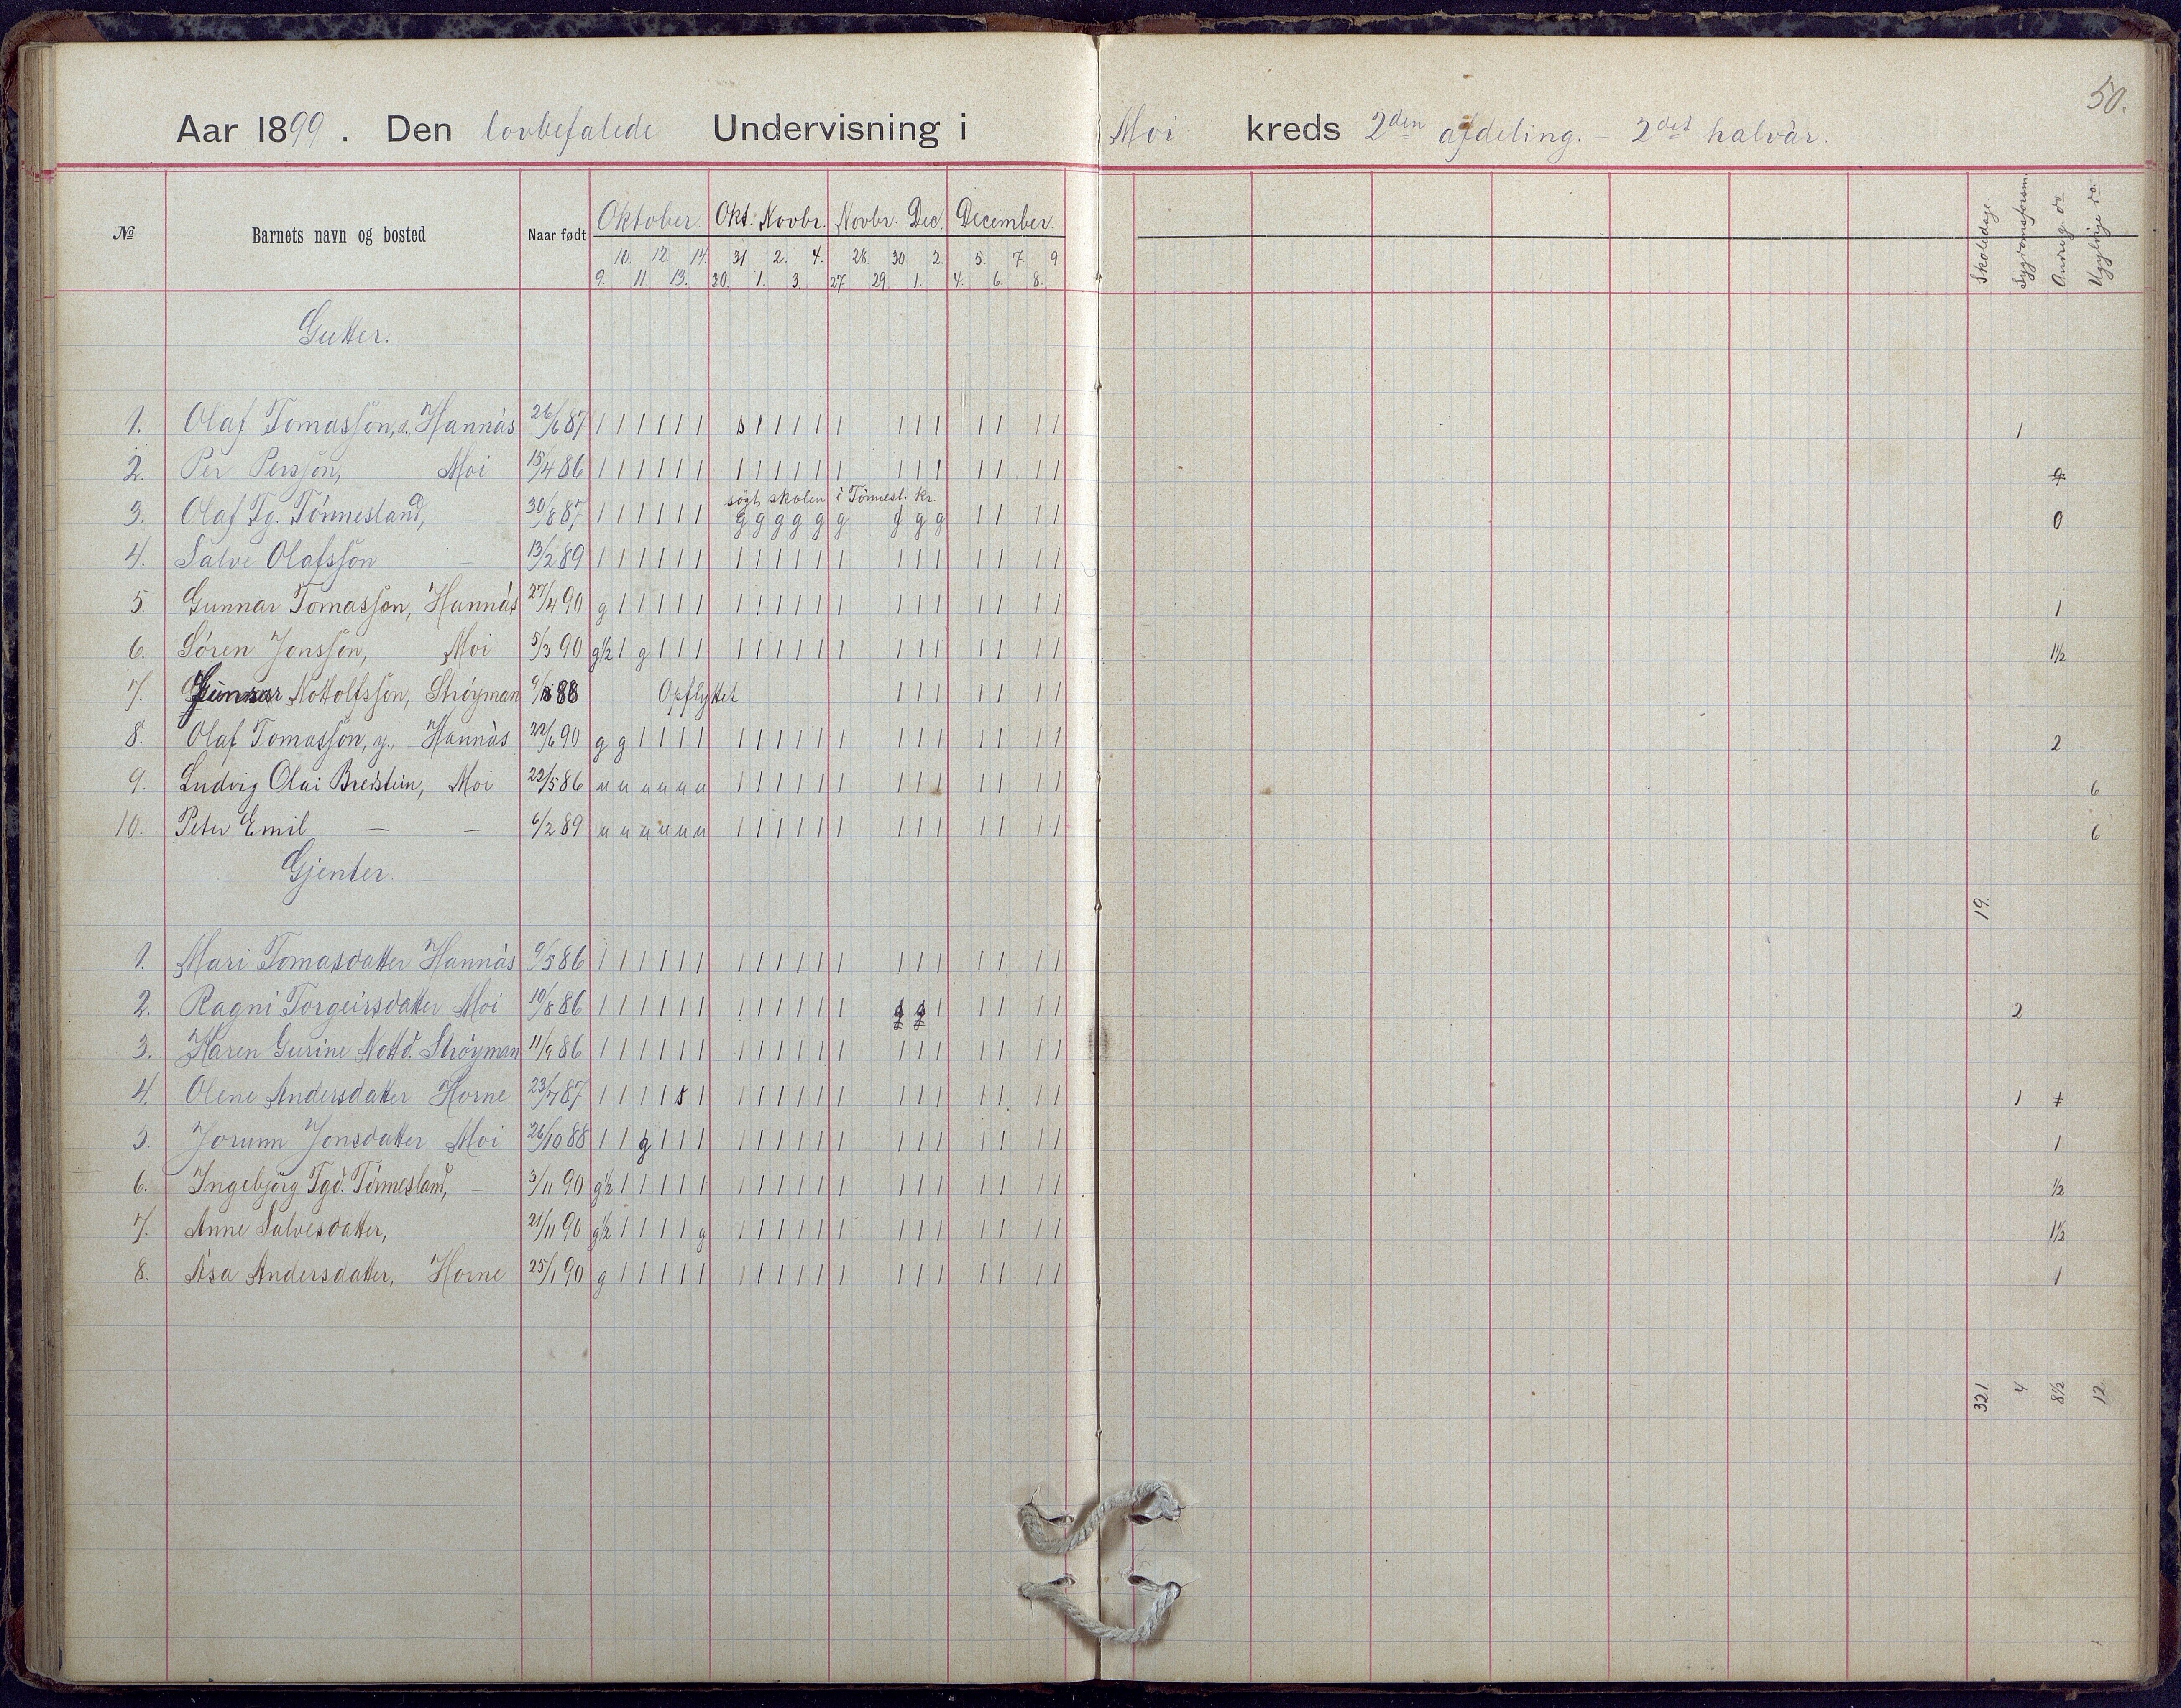 50.
Aar 1899. Den lovbefalede Undervisning i Moi kreds 2den afdeling. – 2det halvår.
№ Barnets navn og bosted Naar født Oktober Okt. Novbr. Novbr. Dec. December. Skoledage. Sygdomsforsøm. Andre g. do Ugyldige do.
10. 12. 14. 31 2. 4. 28. 30 2. 5. 7. 9.
9. 11. 13. 30. 1. 3. 27 29 1. 4. 6. 8.
Gutter.
1. Olaf Tomassøn, æ., Hannås 26/6 87 1 1 1 1 1 1 s 1 1 1 1 1 1 1 1 1 1 1 1 1
2. Per Persson, Moi 15/4 86 1 1 1 1 1 1 1 1 1 1 1 1 1 1 1 1 1 1 1 9
søgt skolen i Tönnesl. kr.
3. Olaf Tg. Tönnesland, 30/8 87 1 1 1 1 1 1 g g g g g g g g g 1 1 1 1 0
4. Salve Olafsson — 13/2 89 1 1 1 1 1 1 1 1 1 1 1 1 1 1 1 1 1 1 1
5. Gunnar Tomassøn, Hannås 27/4 90 g 1 1 1 1 1 1 1 1 1 1 1 1 1 1 1 1 1 1 1
6. Sören Jonsson, Moi 5/3 90 g½ 1 g 1 1 1 1 1 1 1 1 1 1 1 1 1 1 1 1 1½
7. Gunnar Nottolfsson, Ströyman 88 Opflyttet 1 1 1 1 1 1 1
8. Olaf Tomasson, y., Hannås 22/6 90 g g 1 1 1 1 1 1 1 1 1 1 1 1 1 1 1 1 1 2
9. Ludvig Olai Breistein, Moi 22/5 86 u u u u u u 1 1 1 1 1 1 1 1 1 1 1 1 1 6
10. Peter Emil — — 6/2 89 u u u u u u 1 1 1 1 1 1 1 1 1 1 1 1 1 6
Gjenter.
19.
1. Mari Tomasdatter Hannås 9/5 86 1 1 1 1 1 1 1 1 1 1 1 1 1 1 1 1 1 1 1
2. Ragni Torgeirsdatter Moi 10/8 86 1 1 1 1 1 1 1 1 1 1 1 1 s s 1 1 1 1 1 2
3. Karen Gurine Nottd. Ströyman 11/9 86 1 1 1 1 1 1 1 1 1 1 1 1 1 1 1 1 1 1 1
4. Olene Andersdatter Horne 23/7 87 1 1 1 1 s 1 1 1 1 1 1 1 1 1 1 1 1 1 1 1 1
5. Jorunn Jonsdatter Moi 26/10 88 1 1 g 1 1 1 1 1 1 1 1 1 1 1 1 1 1 1 1 1
6. Ingebjörg Tgd. Tönnesland, — 3/11 90 g½ 1 1 1 1 1 1 1 1 1 1 1 1 1 1 1 1 1 1 ½
7. Anne Salvesdatter, — 21/11 90 g½ 1 1 1 1 g 1 1 1 1 1 1 1 1 1 1 1 1 1 1½
8. Åsa Andersdatter, Horne 25/1 90 g 1 1 1 1 1 1 1 1 1 1 1 1 1 1 1 1 1 1 1
321. 4 8½ 12